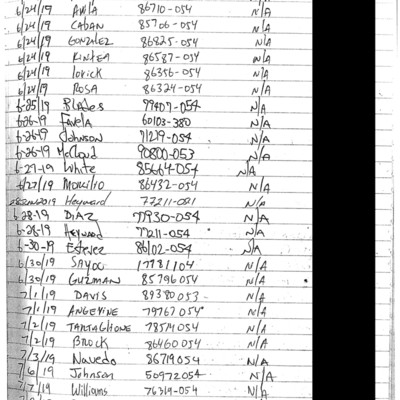 6/24/19 AVILA 86710-054 N/A
6/24/19 CABAN 85706-054 N/A
6/24/19 GONZALEZ 86825-054 N/A
6/24/19 RINTEA 86587-054 N/A
6/24/19 lorick 86356-054 N/A
6/24/19 ROSA 86324-054 N/A
6-25/19 Blades 79407-054 N/A
6-26-19 Favela 60103-380 N/A
6-26-19 Johnson 71219-054 N/A
6-26-19 McCloud 90800-053 N/A
6-27-19 White 85664-054 N/A
6/27/19 MORILLO 86432-054 N/A
Heyward 77211-021 N/A
6-28-19 DIAZ 77930-054 N/A
6-28-19 Heyward 77211-054 N/A
6-30-19 Estevez 86102-054 N/A
6/30/19 SAYOC 17781104 N/A
6/30/19 GUZMAN 85796054 N/A
7/1/19 DAVIS 89380053 N/A
7/1/19 ANGEVINE 79767054 N/A
7/2/19 TARTAGLIONE 78514054 N/A
7/2/19 BROCK 86460054 N/A
7/3/19 Navedo 86719054 N/A
7/6/19 Johnson 50972054 N/A
7/7/19 Williams 76319-054 N/A